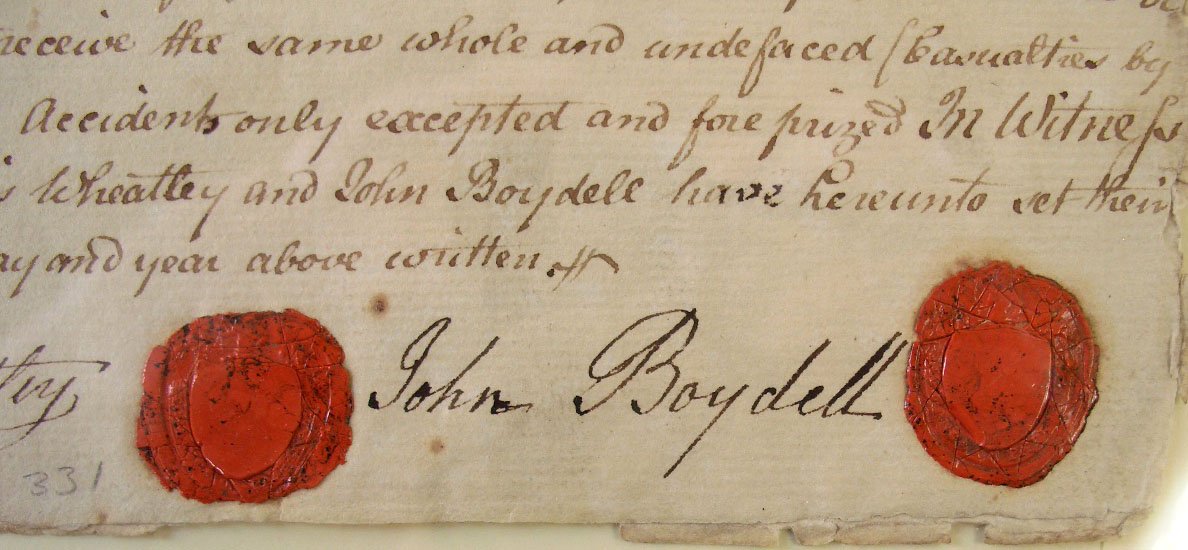 receive the same whole and undefaced (Casualties by
Accidents only excepted and foreprized In Witness
s Wheatley and John Boydell have hereunto set their
ay and year above written
tley John Boydell
331